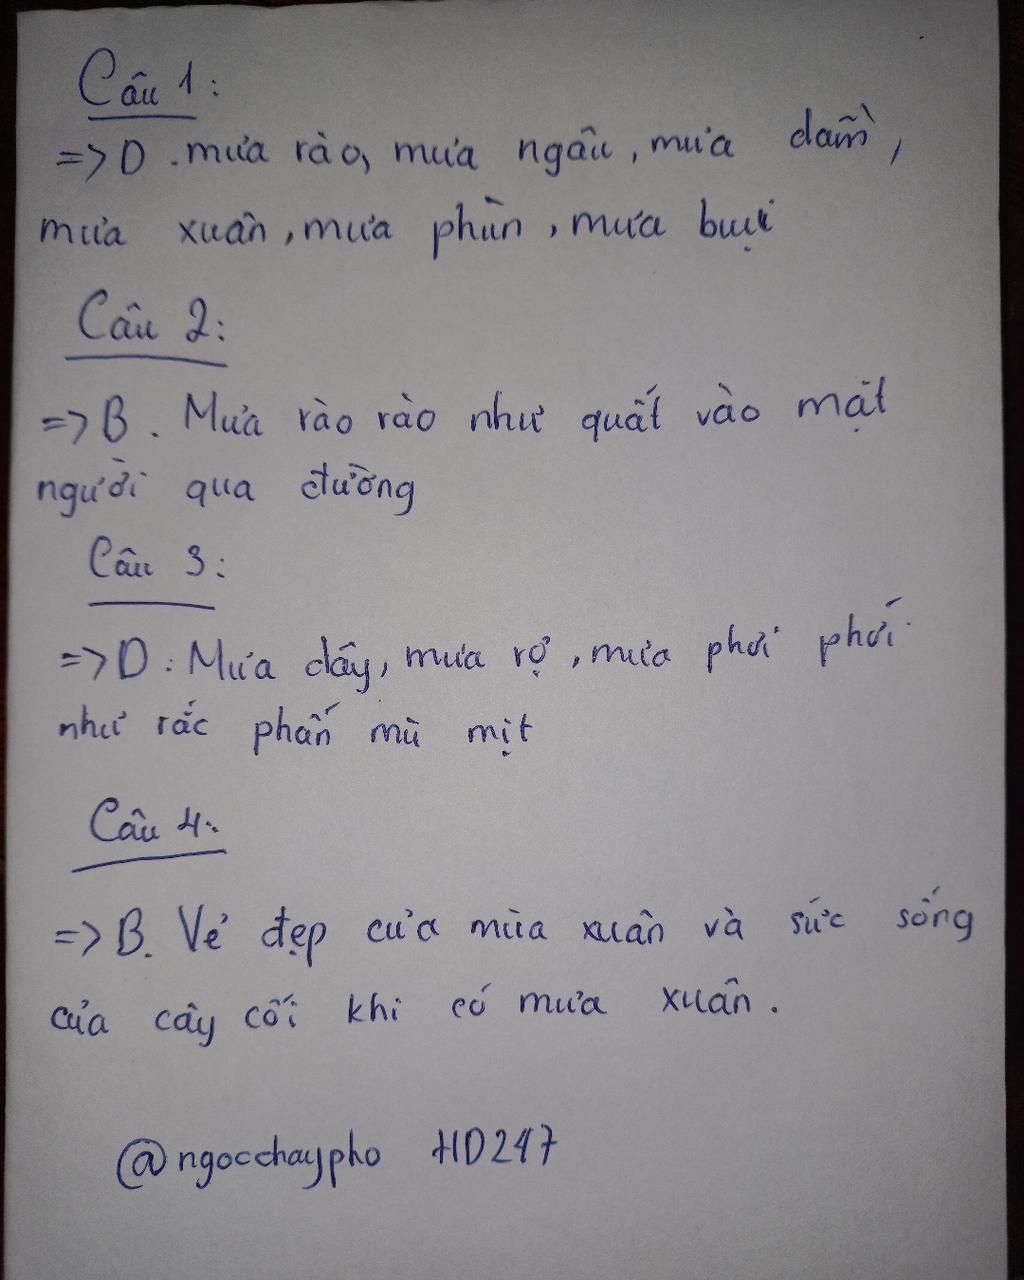 Câu 1:
=> D. mưa rào, mưa ngâu, mưa dầm,
mưa xuân, mưa phùn, mưa bụi
Câu 2:
=> B. Mưa rào rào như quất vào mặt
người qua đường
Câu 3:
=> D. Mưa dây, mưa rợ, mưa phơi phới
như rắc phấn mù mịt
Câu 4:
=> B. Vẻ đẹp của mùa xuân và sức sống
của cây cối khi có mưa xuân.
@ngocchaypho HD247